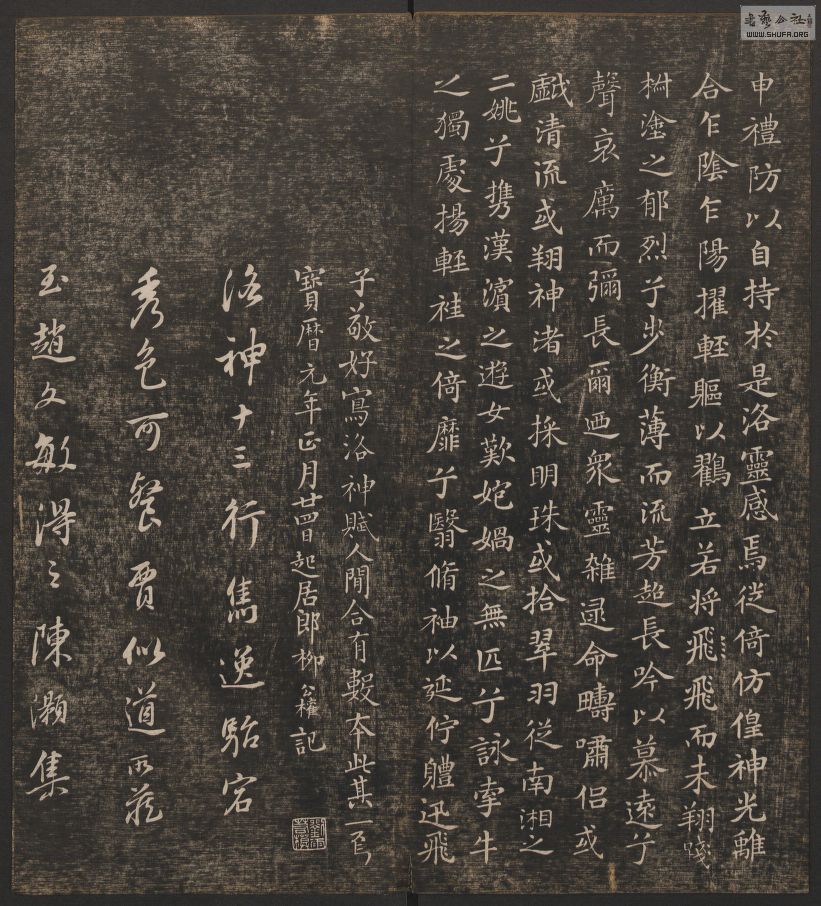 申禮防以自持於是洛靈感焉徙倚仿偟神光離
合乍陰乍陽擢輕軀以鸖立若將飛飛而未翔踐
椒塗之郁烈兮步衡薄而流芳超長吟以慕遠兮
聲哀厲而彌長爾迺衆靈雜遝命疇嘯侣或
戯清流或翔神渚或採明珠或拾翠羽從南湘之
二姚兮携漢濱之遊女歎姹媧之無匹兮詠牽牛
之獨處揚輕袿之倚靡兮翳脩袖以延佇軆迅飛
子敬好寫洛神賦人間合有數本此其一焉
寳曆元年正月廿四日起居郎柳公權記
洛神十三行雋逸駘宕
秀色可餐賈似道所藏
玉趙文敏得之陳灝集
WWW.SHUFA.ORG